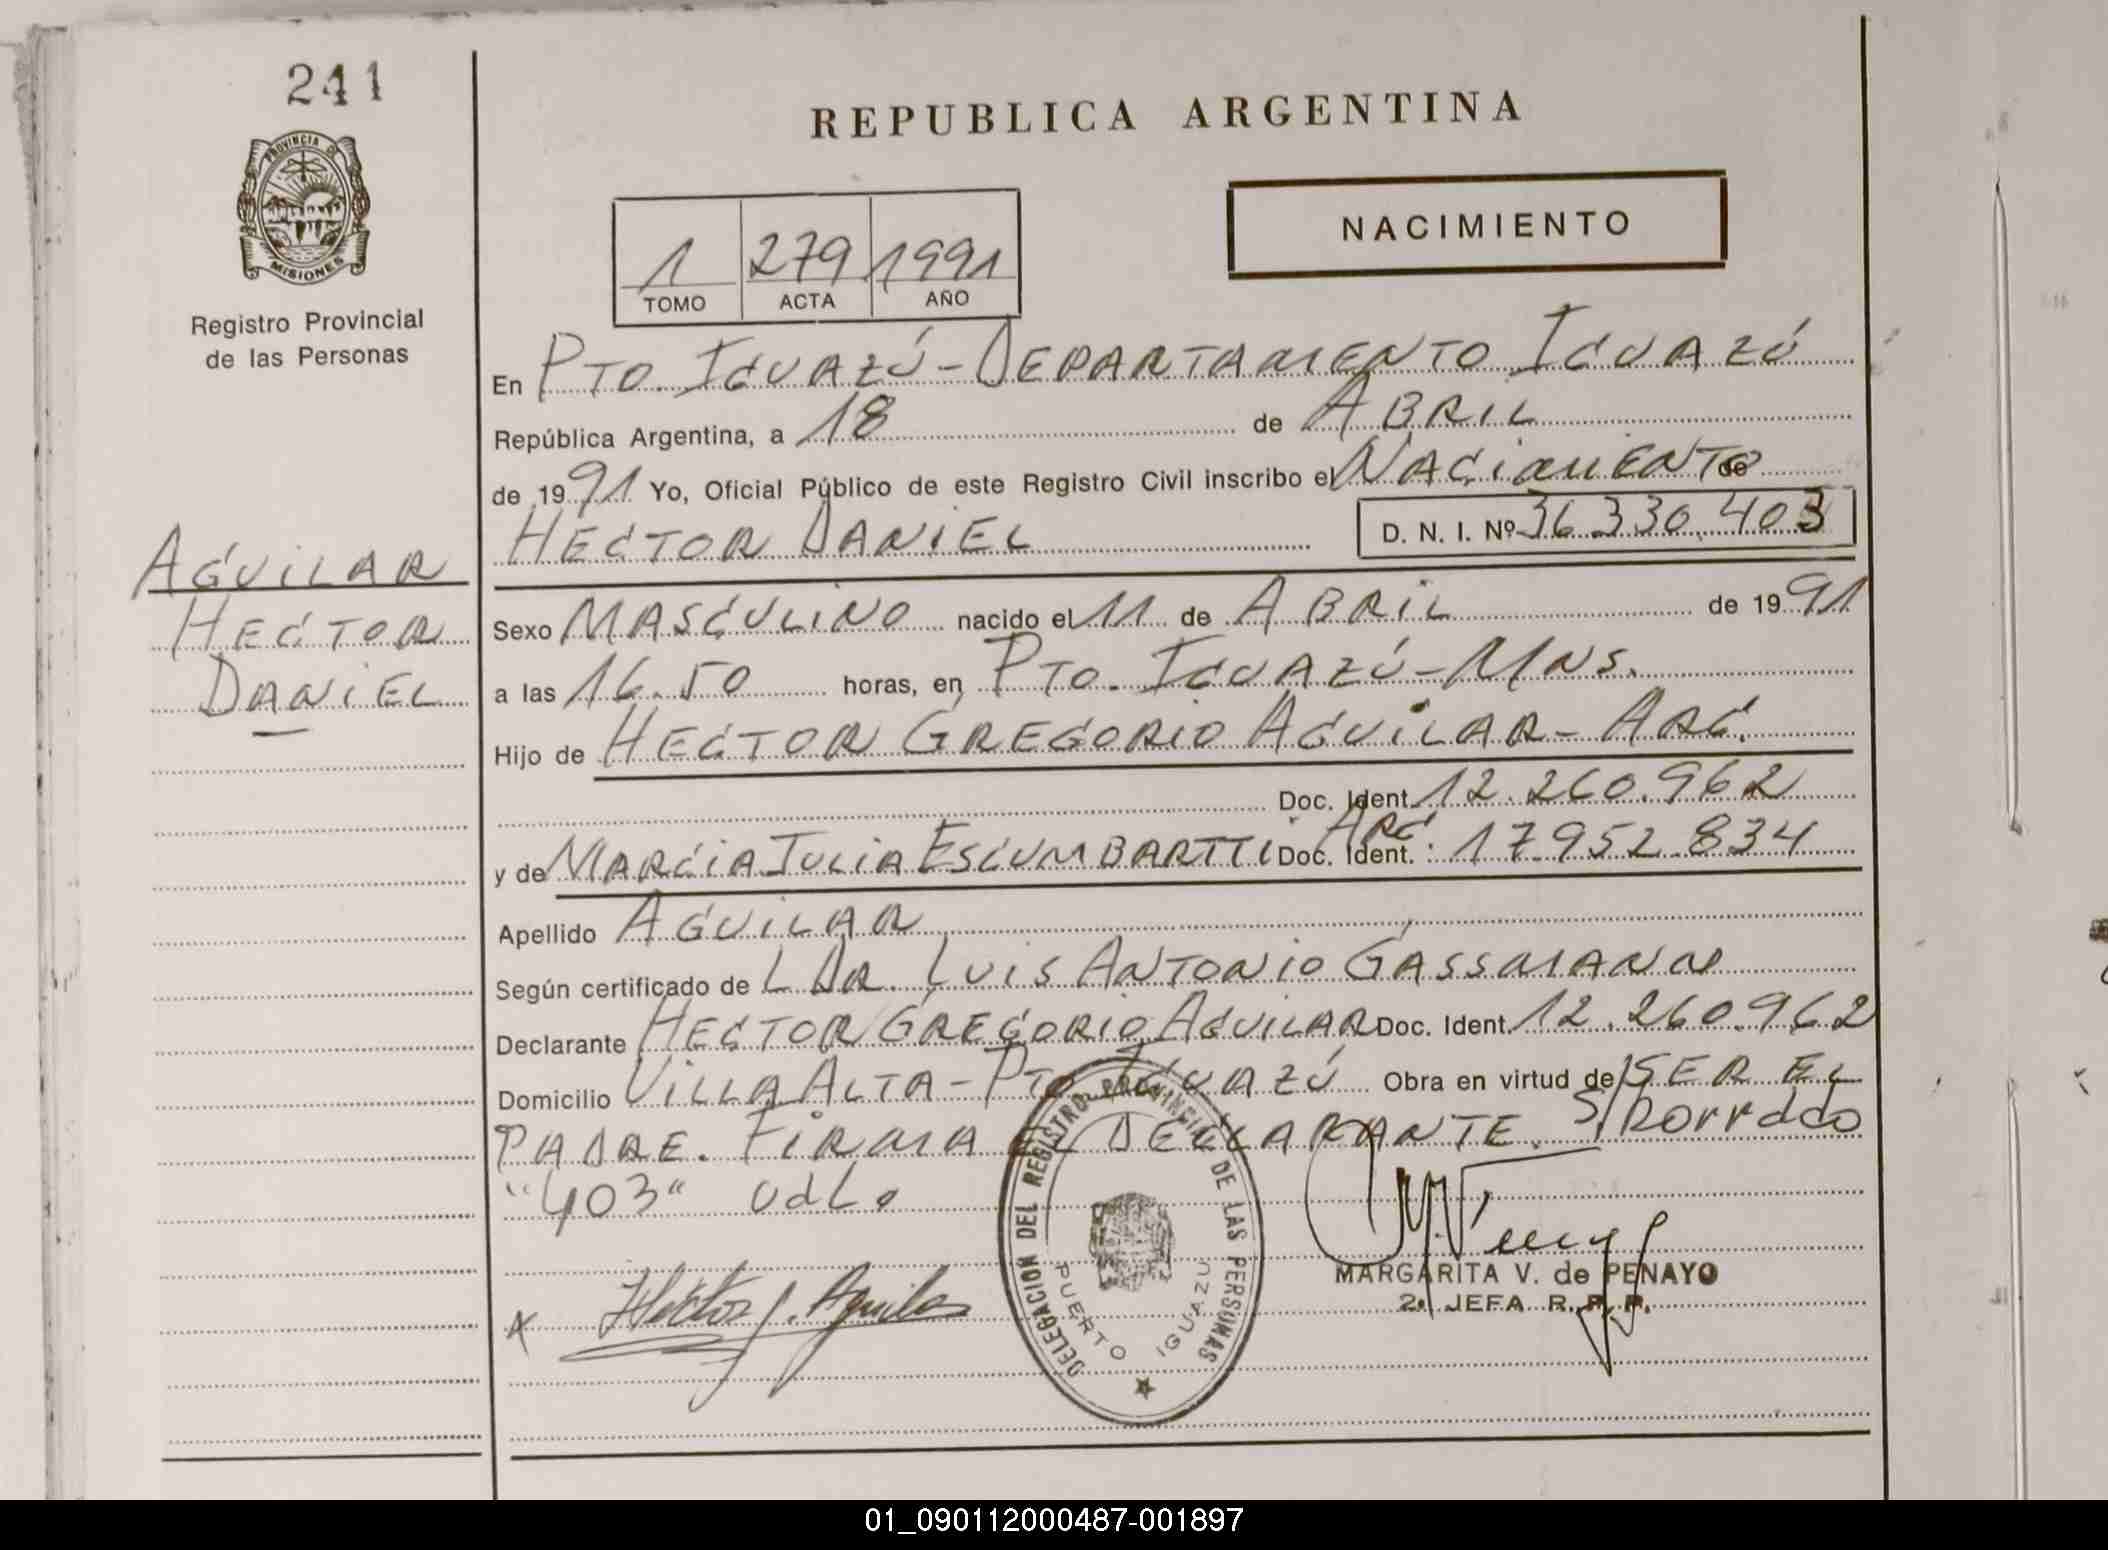 241
PROVINCIA DE
MISIONES
Registro Provincial
de las Personas
AGUILAR
HECTOR
DANIEL
REPUBLICA ARGENTINA
NACIMIENTO
1 279 1991
TOMO ACTA AÑO
En PTO. IGUAZÚ - DEPARTAMENTO IGUAZÚ
República Argentina, a 18 de ABRIL
de 1991 Yo, Oficial Público de este Registro Civil inscribo el NACIMIENTO de
HECTOR DANIEL D. N. I. Nº 36.330.403
Sexo MASCULINO nacido el 11 de ABRIL de 1991
a las 16.50 horas, en PTO. IGUAZÚ - MNS.
Hijo de HECTOR GREGORIO AGUILAR - ARG.
Doc. Ident. 12.260.962
y de MARCIA JULIA ESCUMBARTTI ARG Doc. Ident. 17.952.834
Apellido AGUILAR
Según certificado de L DR. LUIS ANTONIO GASSMANN
Declarante HECTOR GREGORIO AGUILAR Doc. Ident. 12.260.962
Domicilio VILLA ALTA - PTO IGUAZÚ Obra en virtud de SER EL
PADRE. FIRMA EL DECLARANTE. S/Borrado
"403" Vale
x Hector G. Aguilar
DELEGACION DEL REGISTRO PROVINCIAL DE LAS PERSONAS
PUERTO IGUAZU
MARGARITA V. de PENAYO
2ª JEFA R. P. P.
01_090112000487-001897